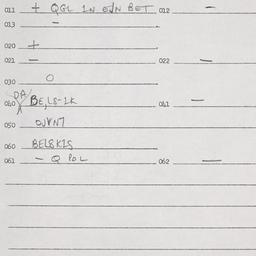 011 + QGL IN EJN BET 012 -
013 -
020 +
021 - 022 -
030 O
040 DA BE,LS-1K 041 -
050 OJVN7
060 BELSKIS
061 - Q POL 062 -